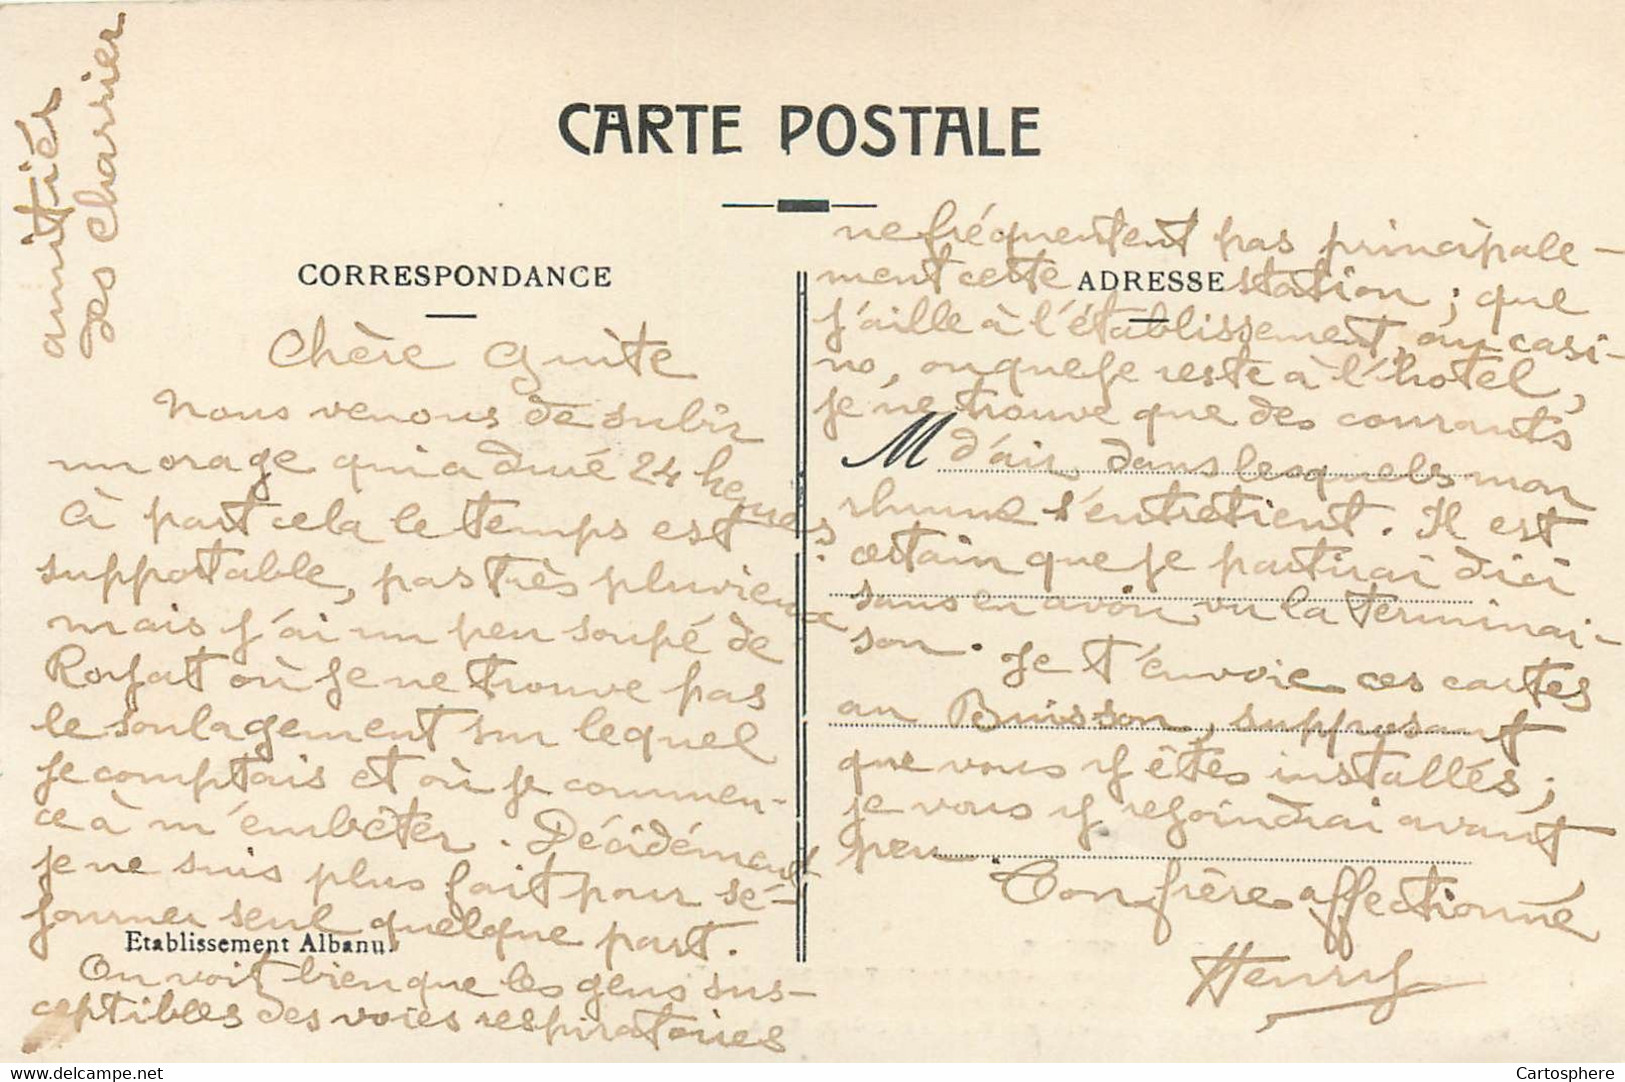 amitiés
des Charrier
CARTE POSTALE
CORRESPONDANCE
Chère Guite
Nous venons de subir
un orage qui a duré 24 heures.
à part cela le temps est
supportable, pas très pluvieux
mais j'ai un peu soupé de
Royat où je ne trouve pas
le soulagement sur lequel
je comptais et où je commen-
ce à m'embêter. Décidément
je ne suis plus fait pour sé-
journer seul quelque part.
Etablissement Albanu
On voit bien que les gens sus-
ceptibles des voies respiratoires
ne fréquentent pas principale-
ment cette station ; que
ADRESSE
j'aille à l'établissement, au casi-
no, ou que je reste à l'hotel,
je ne trouve que des courants
M
d'air, dans lesquels mon
rhume s'entretient. Il est
certain que je partirai d'ici
sans en avoir vu la terminai-
son. Je t'envoie ces cartes
au Buisson, supposant
que vous y êtes installés ;
je vous y rejoindrai avant
peu.
Ton frère affectionné
Henry
delcampe.net
Cartosphere